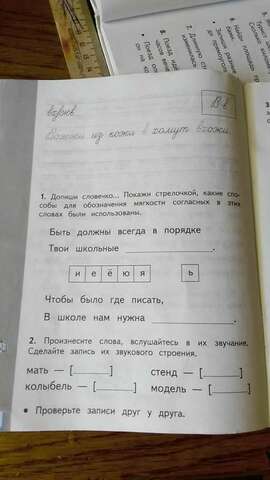 8. Поезд
В в
взрыв
из кожи в хомут
1. Допиши словечко... Покажи стрелочкой, какие спо-
собы для обозначения мягкости согласных в этих
словах были использованы.
Быть должны всегда в порядке
Твои школьные
и е ё ю я ь
Чтобы было где писать,
В школе нам нужна .
2. Произнесите слова, вслушайтесь в их звучание.
Сделайте запись их звукового строения.
мать — [ ] стенд — [ ]
колыбель — [ ] модель — [ ]
• Проверьте записи друг у друга.